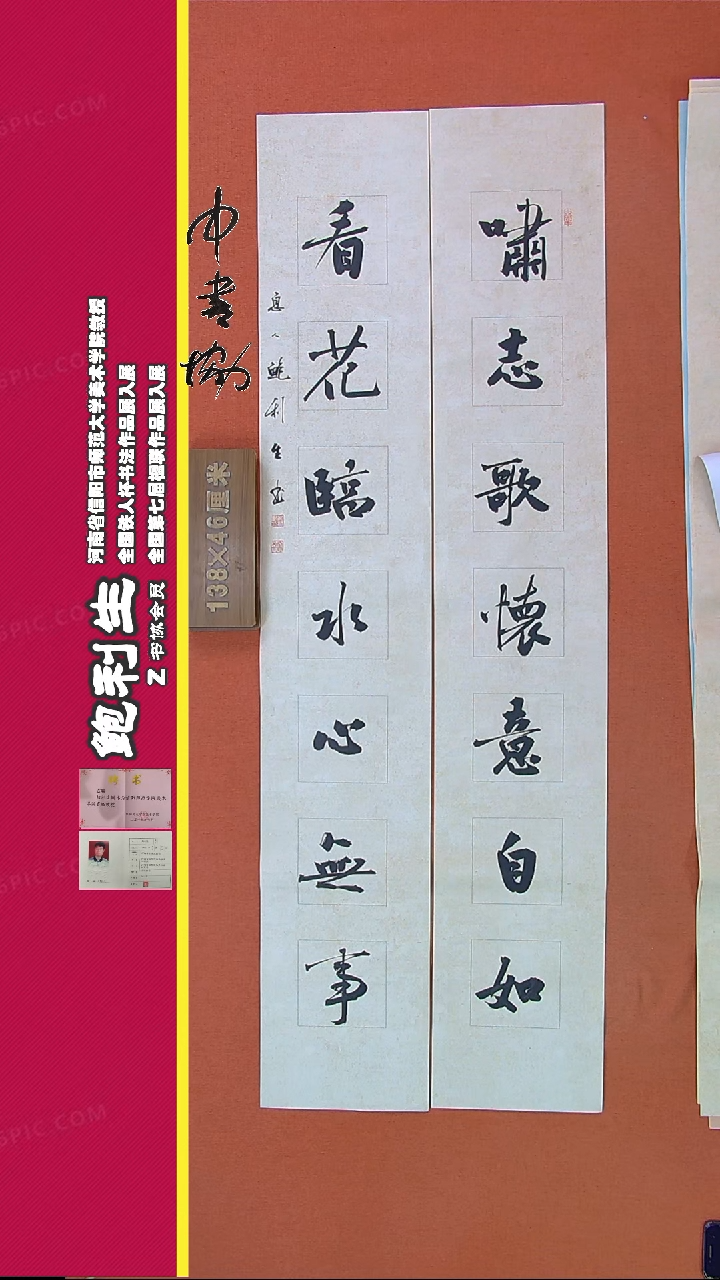 嘯志歌懷意自如
看花臨水心無事
息人鮑利生書
中書協
138×46厘米
河南省信阳市师范大学美术学院教授
全国铁人杯书法作品展入展
全国第七届楹联作品展入展
鲍利生
Z书协会员